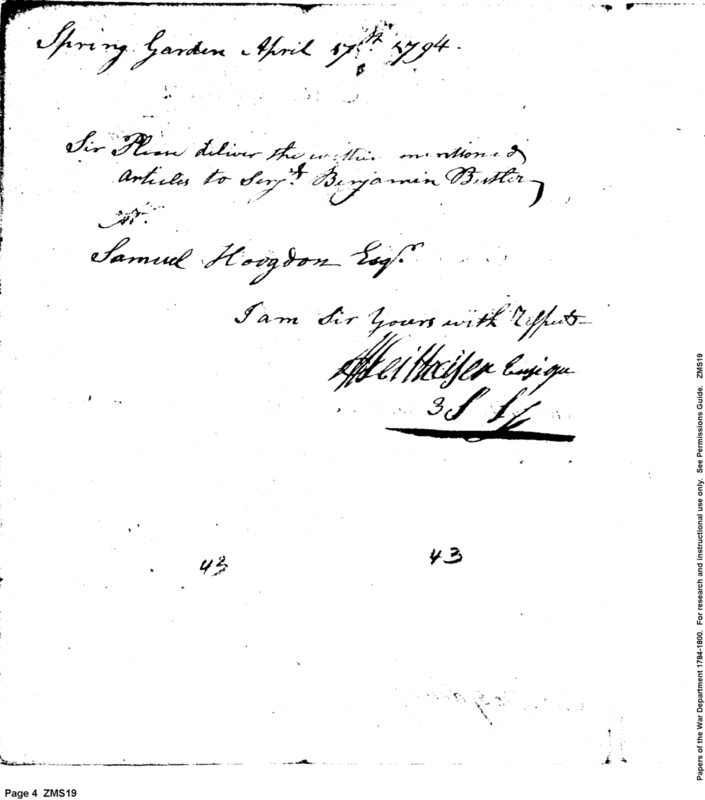 Spring Garden April 17th 1794.
Sir Please deliver the within mentioned
articles to Serjt. Benjamin Butler
Mr.
Samuel Hoogdon Esqr.
I am Sir Yours with Respect
Ensign
3 S L
43 43
Page 4 ZMS19
Papers of the War Department 1784-1800. For research and instructional use only. See Permissions Guide. ZMS19